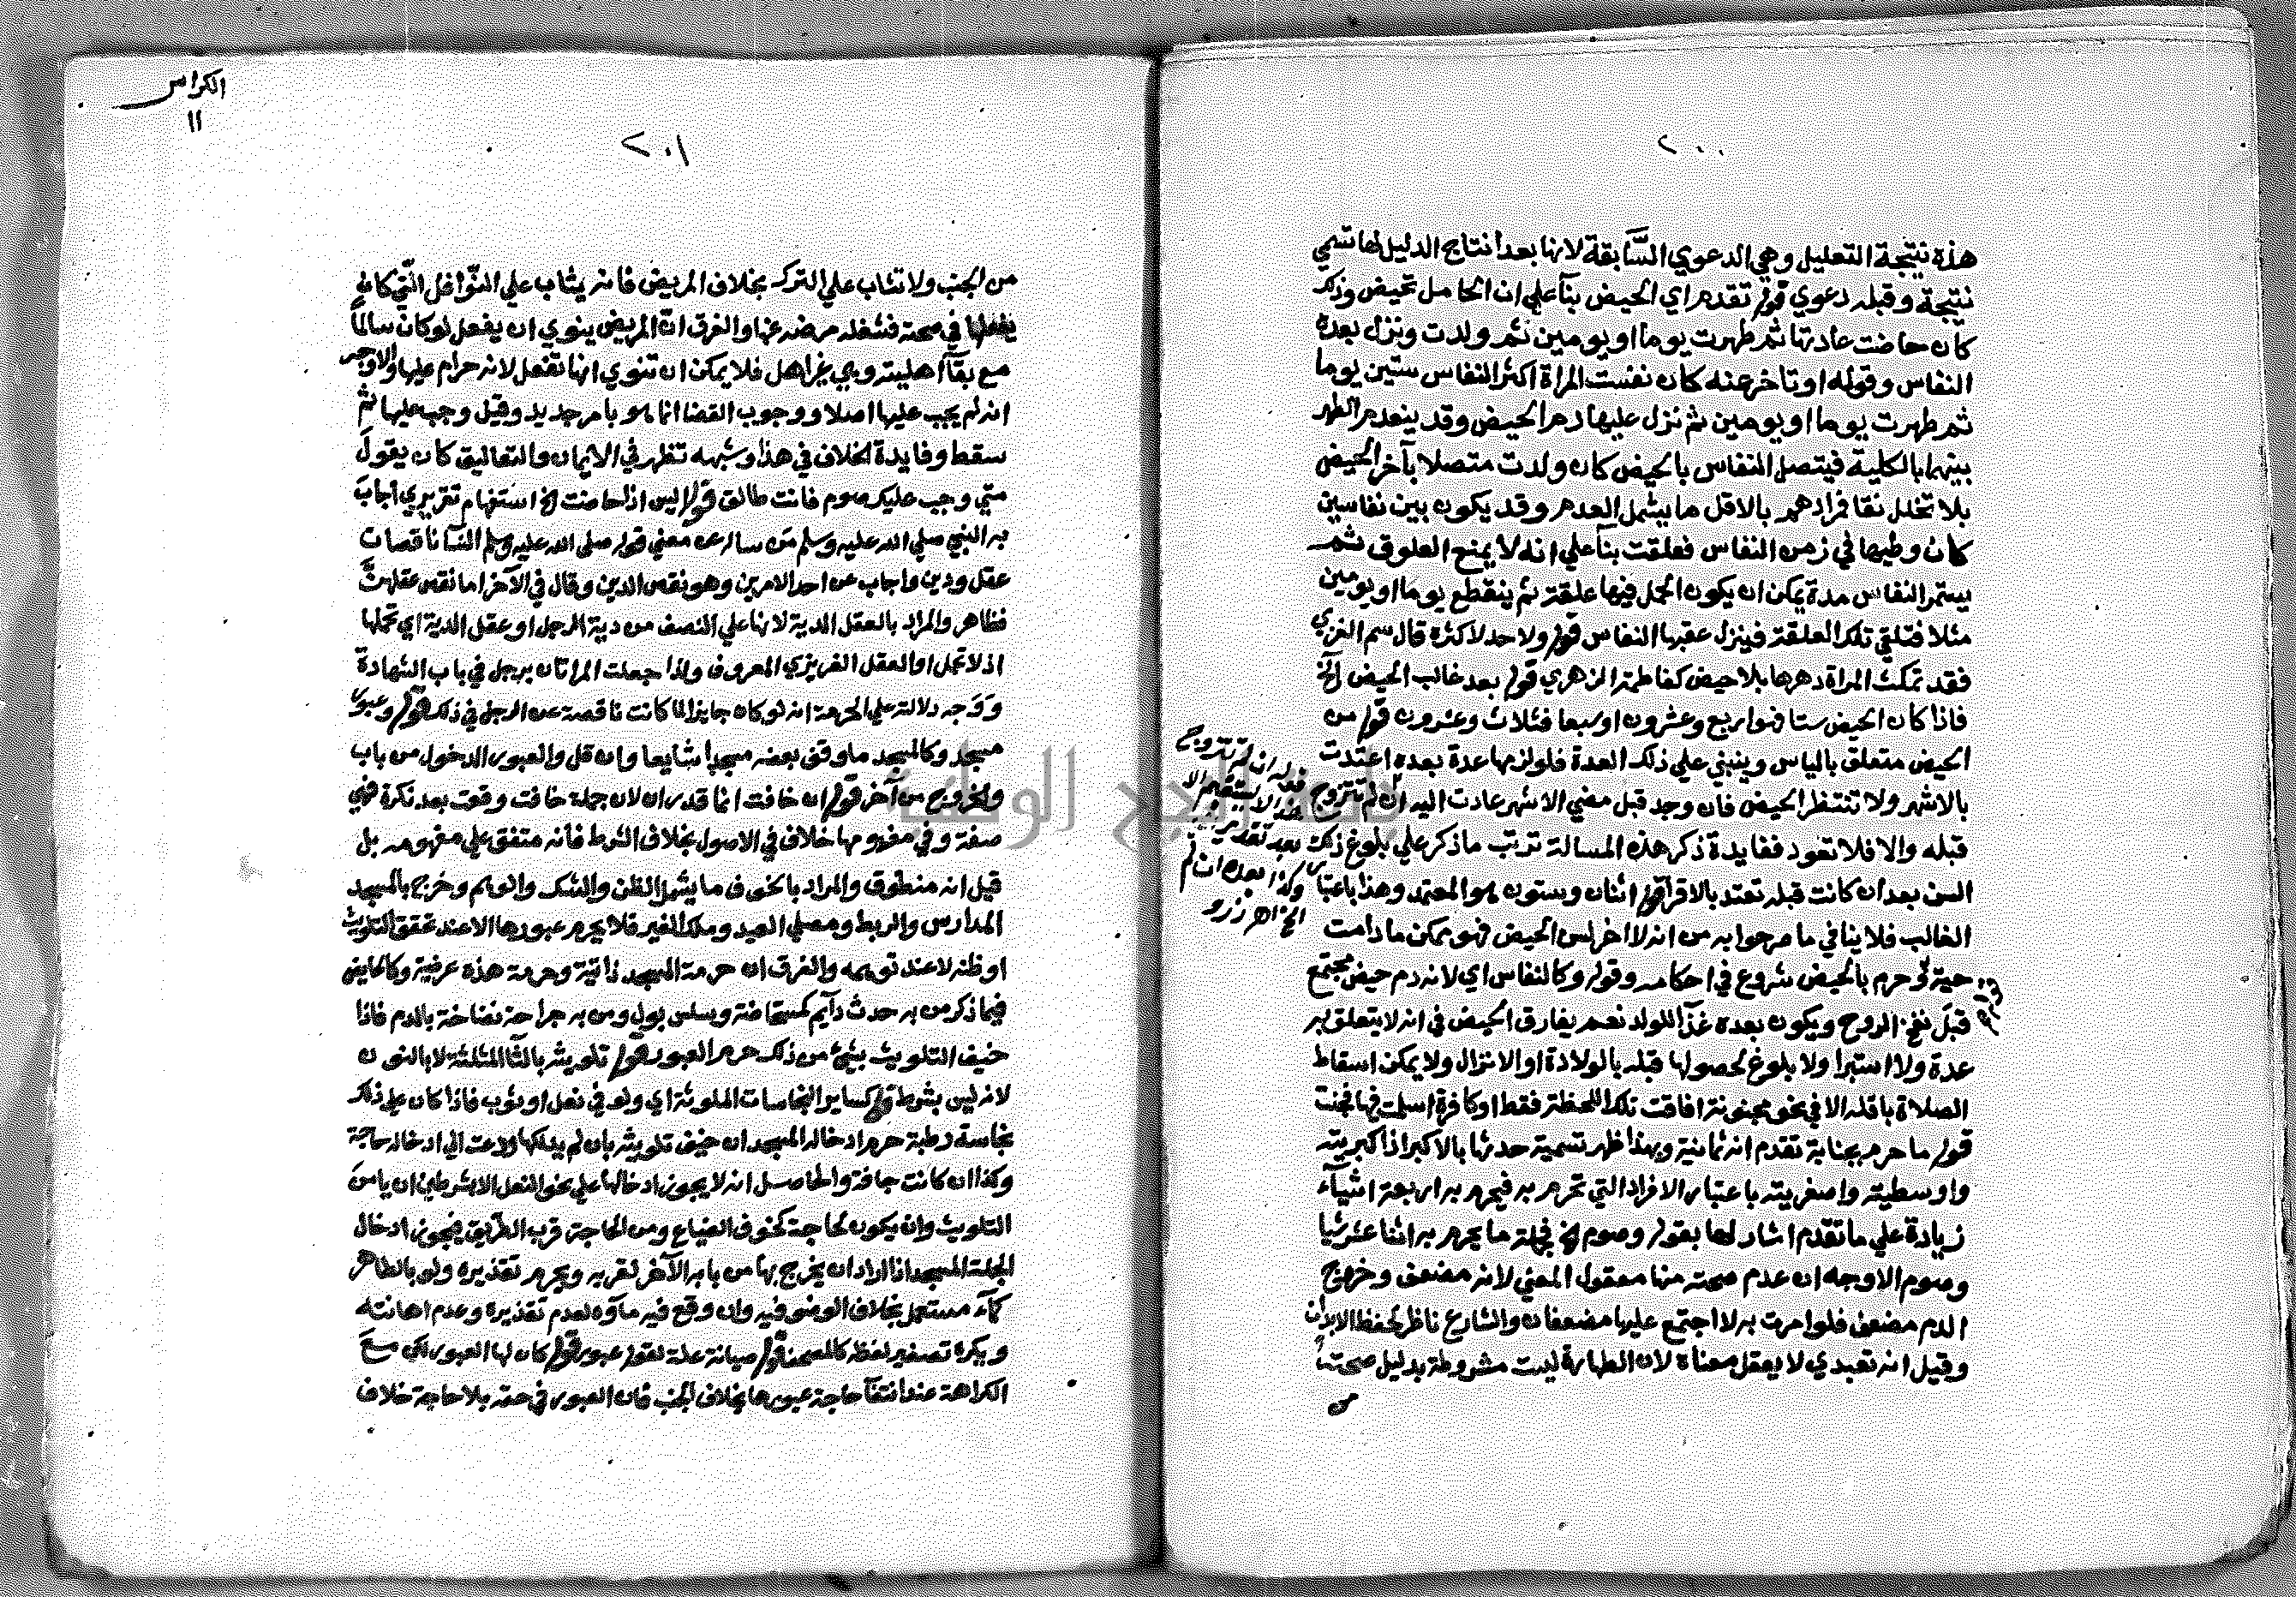 ٢٠٠
هذه نتيجة التعليل وهي الدعوي السَّابقة لانها بعد انتاج الدليل لها تسمي
نتيجة وقبله دعوي قوله تقدم اي الحيض بنآ علي ان الحامل تحيض وذلك
كان حاضت عادتها ثم طهرت يوما او يومين ثم ولدت ونزل بعده
النفاس وقوله او تاخر عنه كان نفست المراة اكثر النفاس ستين يوما
ثم طهرت يوما او يومين ثم نزل عليها دم الحيض وقد ينعدم الطهر
بينهما بالكلية فيتصل النفاس بالحيض كان ولدت متصلا بآخر الحيض
بلا تخلل نقا فرادهم بالاقل ما يشمل العدم وقد يكون بين نفاسين
كان وطيها في زمن النفاس فعلقت بنآ علي انه لا يمنع العلوق ثم
يستمر النفاس مدة يمكن ان يكون الحمل فيها علقة ثم ينقطع يوما او يومين
مثلا فتلقي تلك العلقة فينزل عقبها النفاس قوله ولا حد لاكثره قال سم الغزي
فقد تمكث المراة دهرها بلا حيض كفاطمة الزهري قوله بعد غالب الحيض الخ
فاذا كان الحيض ستا فهو اربع وعشرون او سبعا فثلاث وعشرون قوله من
الحيض متعلق بالياس وينبني علي ذلك العدة فلو لزمها عدة بعده اعتدت
بالاشهر ولا تنتظر الحيض فان وجد قبل مضي الاشهر عادت اليه ان لم تتزوج
قبله والا فلا تعود ففايدة ذكر هذه المسالة ترتب ما ذكر علي بلوغ ذلك
السن بعد ان كانت قبله تعتد بالاقرا قوله اثنان وستون هو المعتمد وهذا باعتبار
الغالب فلا ينافي ما صرحوا به من انه لا اخر لسن الحيض فهو ممكن ما دامت
حية قوله وحرم بالحيض شروع في احكامه وقوله وكالنفاس اي لانه دم حيض مجتمع
قبل نفخ الروح ويكون بعده غذآ للولد نعم يفارق الحيض في انه لا يتعلق به
عدة ولا استبرا ولا بلوغ لحصولها قبله بالولادة او الانزال ولا يمكن اسقاط
الصلاة باقله الا في نحو مجنونة افاقت تلك اللحظة فقط او كافرة اسلمت فيها فجنت
قوله ما حرم بجنابة تقدم انه ثمانية وبهذا ظهر تسمية حدثها بالاكبر اذ اكبريته
واوسطيته واصغريته باعتبار الافراد التي تحرم به فيحرم به اربعة اشيآء
زيادة علي ما تقدم اشار لها بقوله وصوم الخ فجملة ما يحرم به اثنا عشر شيا
وصوم الاوجه ان عدم صحته منها معقول المعني لانه مضعف وخروج
الدم مضعف فلو امرت به لا اجتمع عليها مضعفان والشارع ناظر لحفظ الابدان
وقيل انه تعبدي لا يعقل معناه لان الطهارة ليست مشروطة بدليل صحته
من
قوله ان لم تتزوج
وكذا بعده ان لم
الكراس
١١
٢٠١
من الجنب ولا تثاب علي الترك بخلاف المريض فانه يثاب علي النَّوافل التَّي كان
يفعلها في صحته فشغله مرضه عنها والفرق انَّ المريض ينوي ان يفعل لو كان سالمًا
مع بقآء اهليته وهي غير اهل فلا يمكن ان تنوي انها تفعل لانه حرام عليها والاوجه
انه لم يجب عليها اصلا ووجوب القضا انما هو بامر جديد وقيل وجب عليها ثم
سقط وفايدة الخلاف في هذا وشبهه تظهر في الايمان والتعاليق كان يقول
متي وجب عليك صوم فانت طالق قوله اليس اذا حاضت الخ استفهام تقريري اجاب
به النبي صلي الله عليه وسلم من ساله عن معني قوله صلي الله عليه وسلم النسآ ناقصات
عقل ودين واجاب عن احد الامرين وهو نقص الدين وقال في الآخر اما نقص عقلهنَّ
فظاهر والمراد بالعقل الدية لانها علي النصف من دية الرجل او عقل الدية اي تحملها
اذ لا تحمل او العقل الغريزي المعروف ولذا جعلت المراتان برجل في باب الشهادة
ووجه دلالته علي الحرمة انه لو كان جايزا لما كانت ناقصة عن الرجل في ذلك قوله وعبور
مسجد وكالمسجد ما وقف بعضه مسجدا شايعا وان قل والعبور الدخول من باب
والخروج من آخر قوله ان خافت انما قدر ان لان جملة خافت وقعت بعد نكرة فهي
صفة وفي مفهومها خلاف في الاصول بخلاف الشرط فانه متفق علي مفهومه بل
قيل انه منطوق والمراد بالخوف ما يشمل الظن والشك والوهم وخرج بالمسجد
المدارس والربط ومصلي العيد وملك الغير فلا يحرم عبورها الا عند تحقق التلويث
او ظنه لا عند توهمه والفرق ان حرمة المسجد ذاتية وحرمة هذه عرضية وكالحايض
فيما ذكر من به حدث دآيم كمستحاضة وسلس بول ومن به جراحة نضاخة بالدم فاذا
خيف التلويث بشئ من ذلك حرم العبور قوله تلويثه بالثا المثلثة لا بالنون
لانه ليس بشرط قوله كساير النجاسات الملوثة اي ولو في نعل او ثوب فاذا كان علي ذلك
نجاسة رطبة حرم ادخاله المسجد ان خيف تلويثه بان لم يدلكها ولا دعت الي ادخاله حاجة
وكذا ان كانت جافة والحاصل انه لا يجوز ادخالها علي نحو النعل الا بشرطين ان يامن
التلويث وان يكون لحاجة كخوف الضياع ومن الحاجة قرب الطريق فيجوز ادخال
الجلة المسجد اذا اراد ان يخرج بها من بابه الآخر لقربه ويحرم تقذيره ولو بالطاهر
كمآء مستعمل بخلاف الوضو فيه وان وقع فيه ماؤه لعدم تقذيره وعدم اهانته
ويكره تصغير لفظه كالمصحف قوله صيانة علة لقوله عبور قوله كان لها العبور لكن مع
الكراهة عند انتفآ حاجة عبورها بخلاف الجنب فان العبور في حقه بلا حاجة خلاف